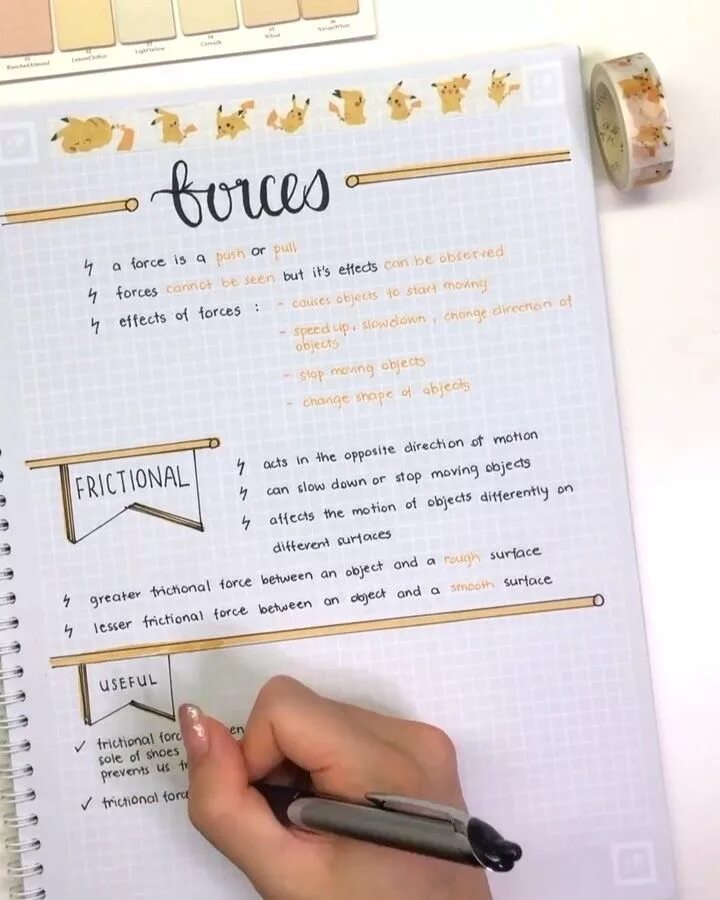 01 02 03 04 05 06
BlanchedAlmond LemonChiffon LightYellow Cornsilk Wheat NavajoWhite
forces
ϟ a force is a push or pull
ϟ forces cannot be seen but it's effects can be observed
ϟ effects of forces : - causes objects to start moving
- speed up, slowdown, change direction of
objects
- stop moving objects
- change shape of objects
FRICTIONAL
ϟ acts in the opposite direction of motion
ϟ can slow down or stop moving objects
ϟ affects the motion of objects differently on
different surfaces
ϟ greater frictional force between an object and a rough surface
ϟ lesser frictional force between an object and a smooth surface
USEFUL
✓ frictional forc en
sole of shoes
prevents us
✓ frictional forc